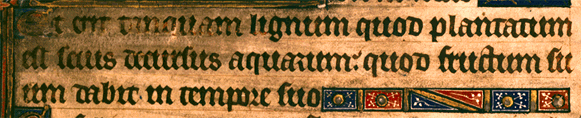 Et erit tanquam lignum quod plantatum
est secus decursus aquarum: quod fructum su
um dabit in tempore suo